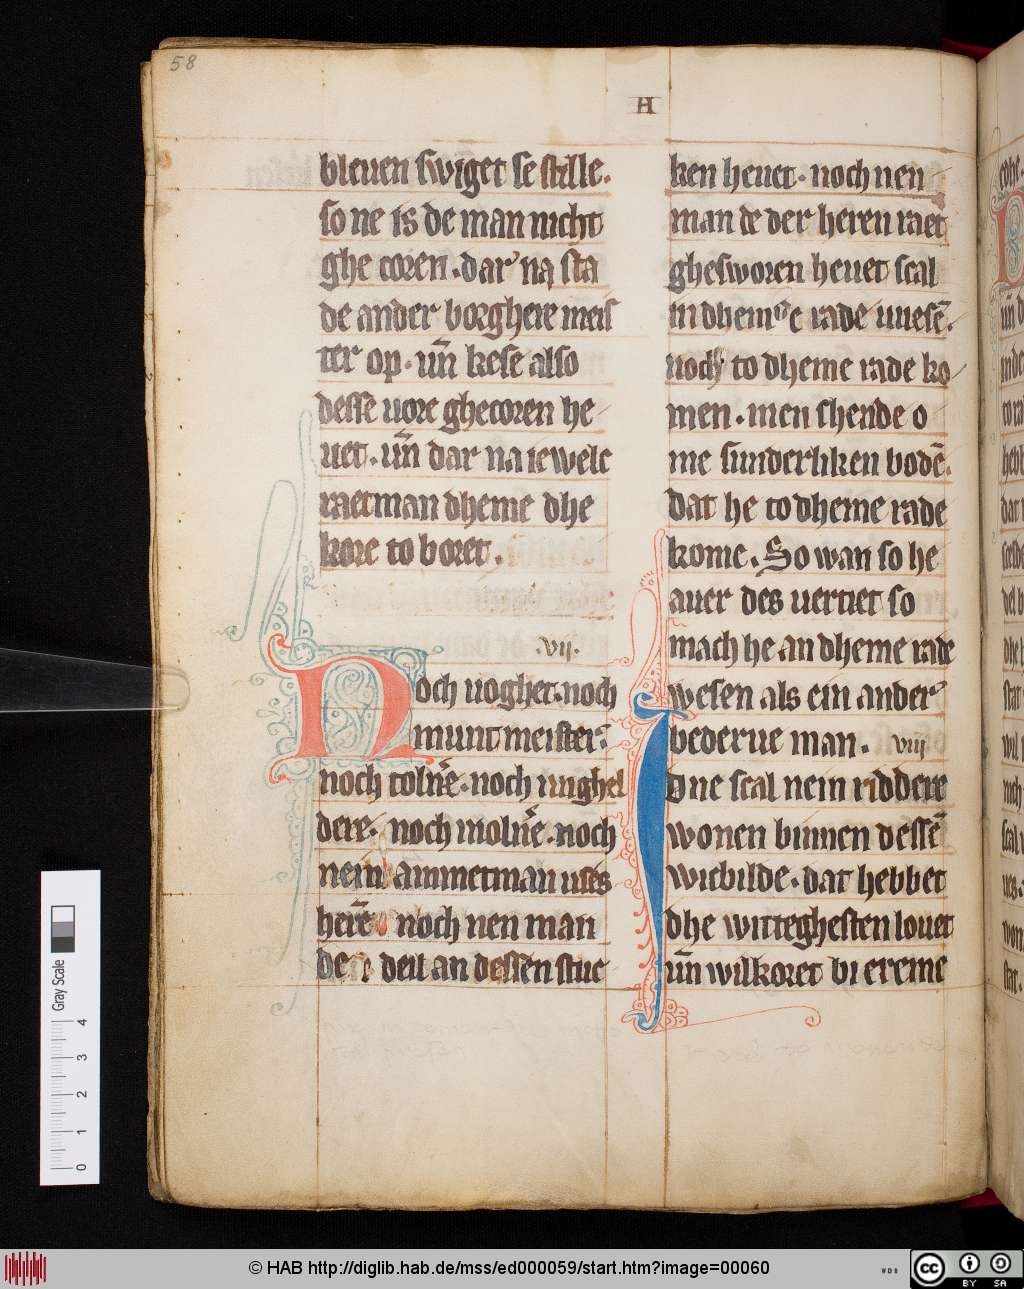 58
H
bleuen swiget se stille.
so ne is de man nicht
ghe coren. dar' na sta
de ander borghere meis
ter op. un̄ kese also
desse uore ghecoren he
uet. un̄ dar na iewelc
raetman dheme dhe
kore to boret.
.vij.
Noch uoghet. noch
muntmeister.
noch tolnēe. noch inghel
dere. noch molnēe. noch
nein ammetman uses
herēn noch nen man
de deil an dessen stuc
ken heuet. noch nen
man de der heren raet
ghesworen heuet scal
in dheme rade wesē.
noch to dheme rade ko
men. men shende o
me sunderliken bodē.
dat he to dheme rade
kome. So wan so he
auer des uertiet so
mach he an dheme rade
wesen als ein ander
bederue man. viij
Idne scal nein riddere
wonen binnen dessē
wicbilde. dat hebbet
dhe wittteghesten louet
un̄ wilkoret bi ereme
Gray Scale
4
3
2
1
0
© HAB http://diglib.hab.de/mss/ed000059/start.htm?image=00060
WDB
cc
BY SA